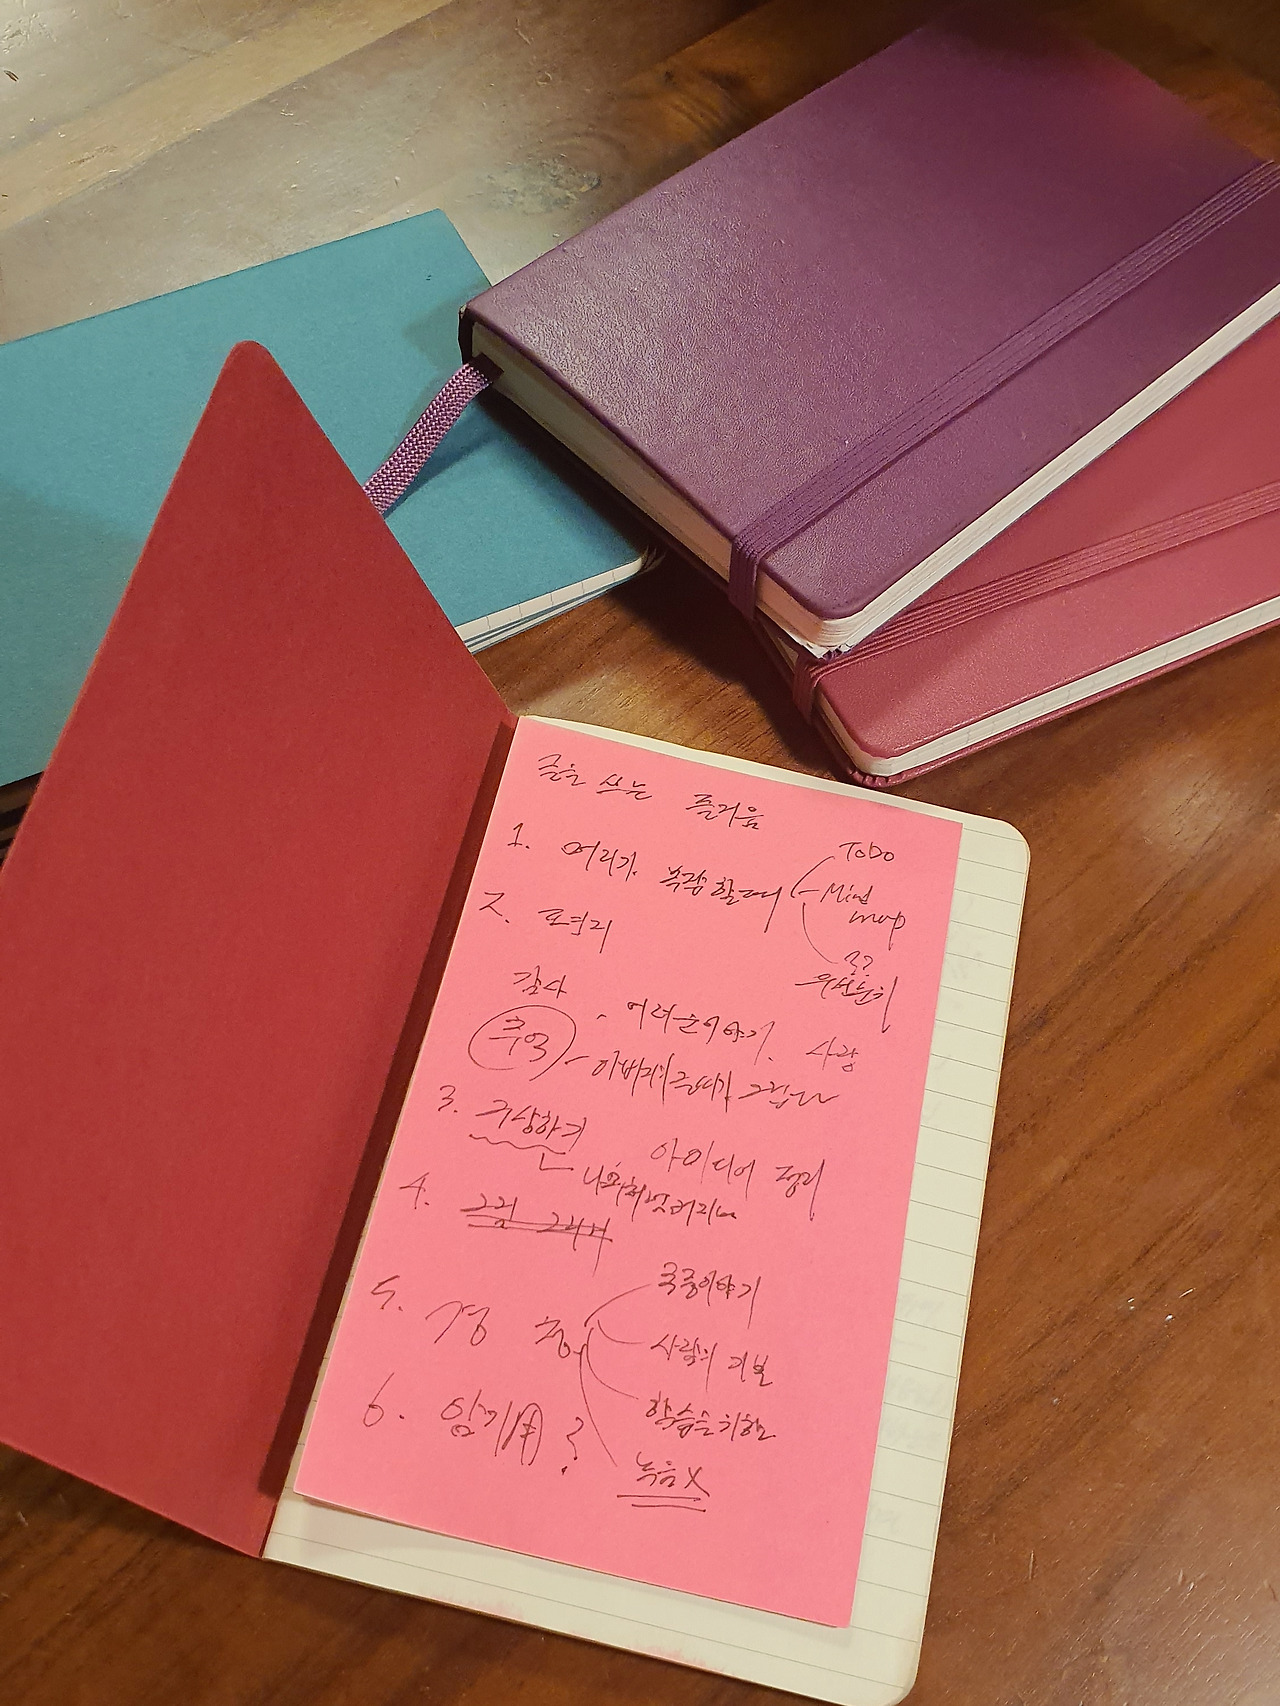 글을 쓰는 즐거움
1. 머리가 복잡할때 ToDo
Mind map
우선순위
2. 편지
감사
추억 - 어려운 이야기, 사랑
- 아버지의 글씨가 그립다
3. 구상하기 아이디어 정리
4. 그림 그리기
5. 경청
국중이야기
사람의 기본
학습을 위한
녹음 X
6. 암기用?